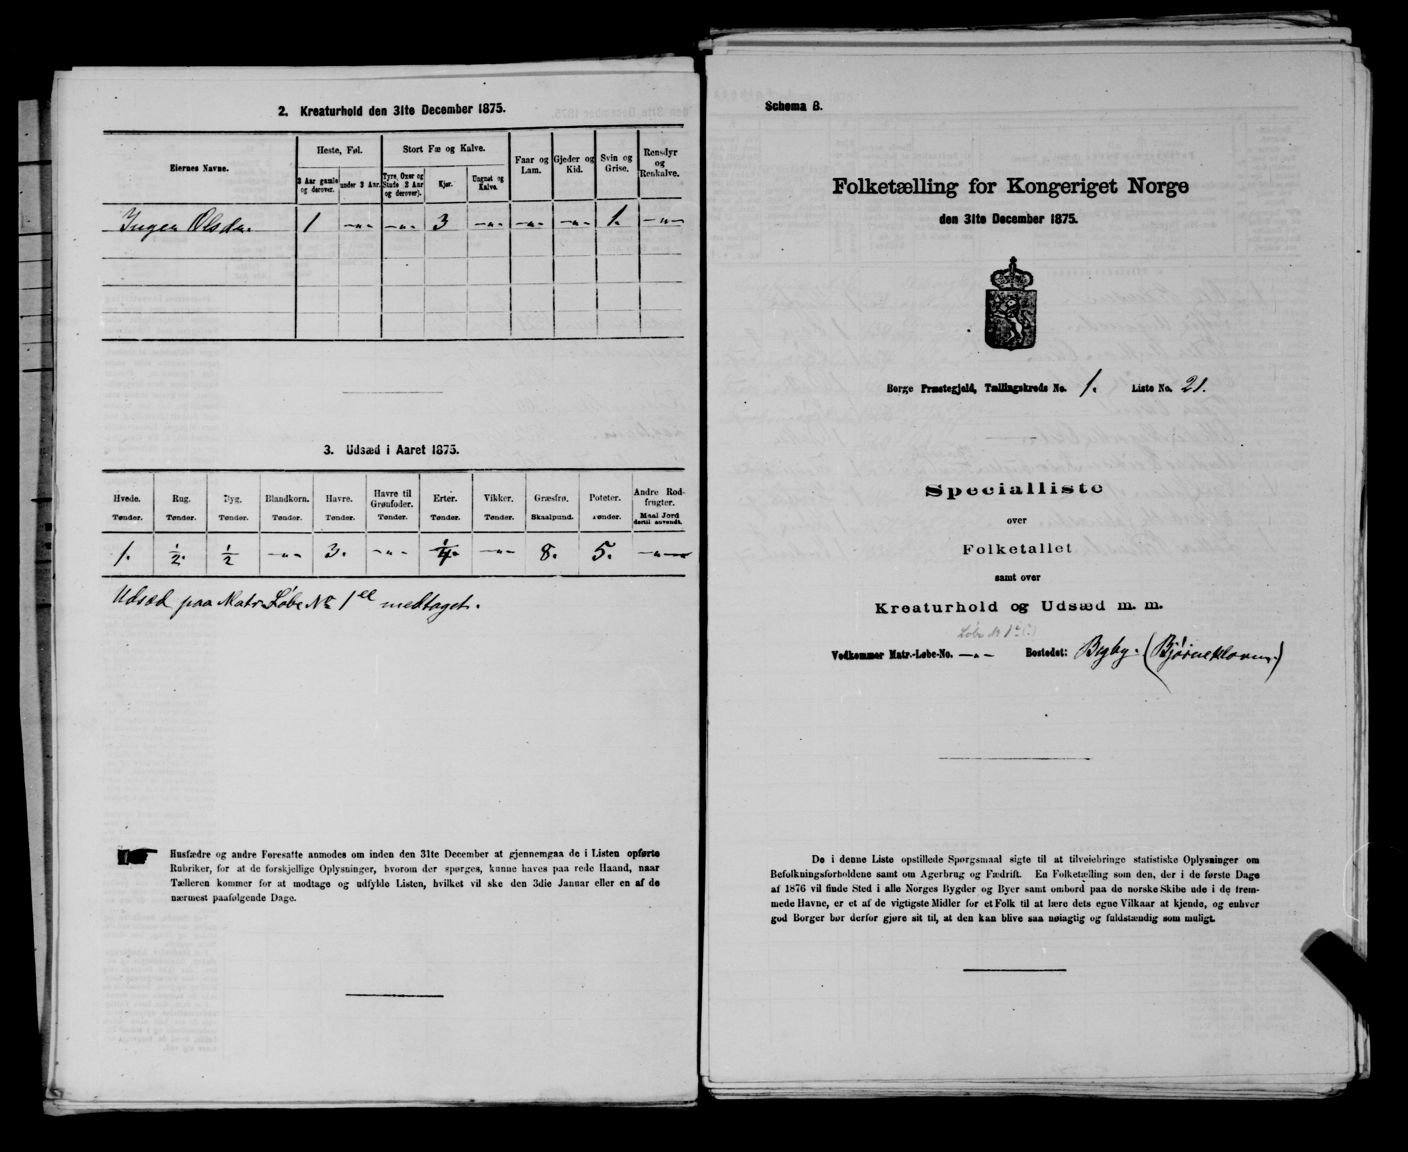 2. Kreaturhold den 31te December 1875.
Eiernes Navne.
Heste, Føl.
3 Aar gamle og derover.
under 3 Aar.
Stort Fæ og Kalve.
Tyre, Oxer og Stude (2 Aar og derover).
Kjør.
Ungnøt og Kalve.
Faar og Lam.
Gjeder og Kid.
Svin og Grise.
Rensdyr og Renkalve.
Inger Olsdr. 1 -"- -"- 3 -"- -"- -"- 1. -"-
3. Udsæd i Aaret 1875.
Hvede. Rug. Byg. Blandkorn. Havre. Havre til Grønfoder. Erter. Vikker. Græsfrø. Poteter. Andre Rodfrugter.
Tønder. Tønder. Tønder. Tønder. Tønder. Tønder. Tønder. Tønder. Skaalpund. Tønder. Maal Jord dertil anvendt.
1. ½. ½ -"- 3. -"- ¼. -"- 8. 5. -"-
Udsæd paa Matr. Løbe No 1 medtaget.
Husfædre og andre Foresatte anmodes om inden den 31te December at gjennemgaa de i Listen opførte
Rubriker, for at de forskjellige Oplysninger, hvorom der spørges, kunne haves paa rede Haand, naar
Tælleren kommer for at modtage og udfylde Listen, hvilket vil ske den 3die Januar eller en af de
nærmest paafølgende Dage.
Schema B.
Folketælling for Kongeriget Norge
den 31te December 1875.
Borge Præstegjeld, Tællingskreds No. 1. Liste No. 21.
Specialliste
over
Folketallet
samt over
Kreaturhold og Udsæd m. m.
Løbe No 1
Vedkommer Matr.-Løbe-No. -"- Bostedet: Begby. (Bjørneklova.)
De i denne Liste opstillede Spørgsmaal sigte til at tilveiebringe statistiske Oplysninger om
Befolkningsforholdene samt om Agerbrug og Fædrift. En Folketælling som den, der i de første Dage
af 1876 vil finde Sted i alle Norges Bygder og Byer samt ombord paa de norske Skibe ude i de frem-
mede Havne, er et af de vigtigste Midler for et Folk til at lære dets egne Vilkaar at kjende, og enhver
god Borger bør derfor gjøre sit til, at den kan blive saa nøiagtig og fuldstændig som muligt.